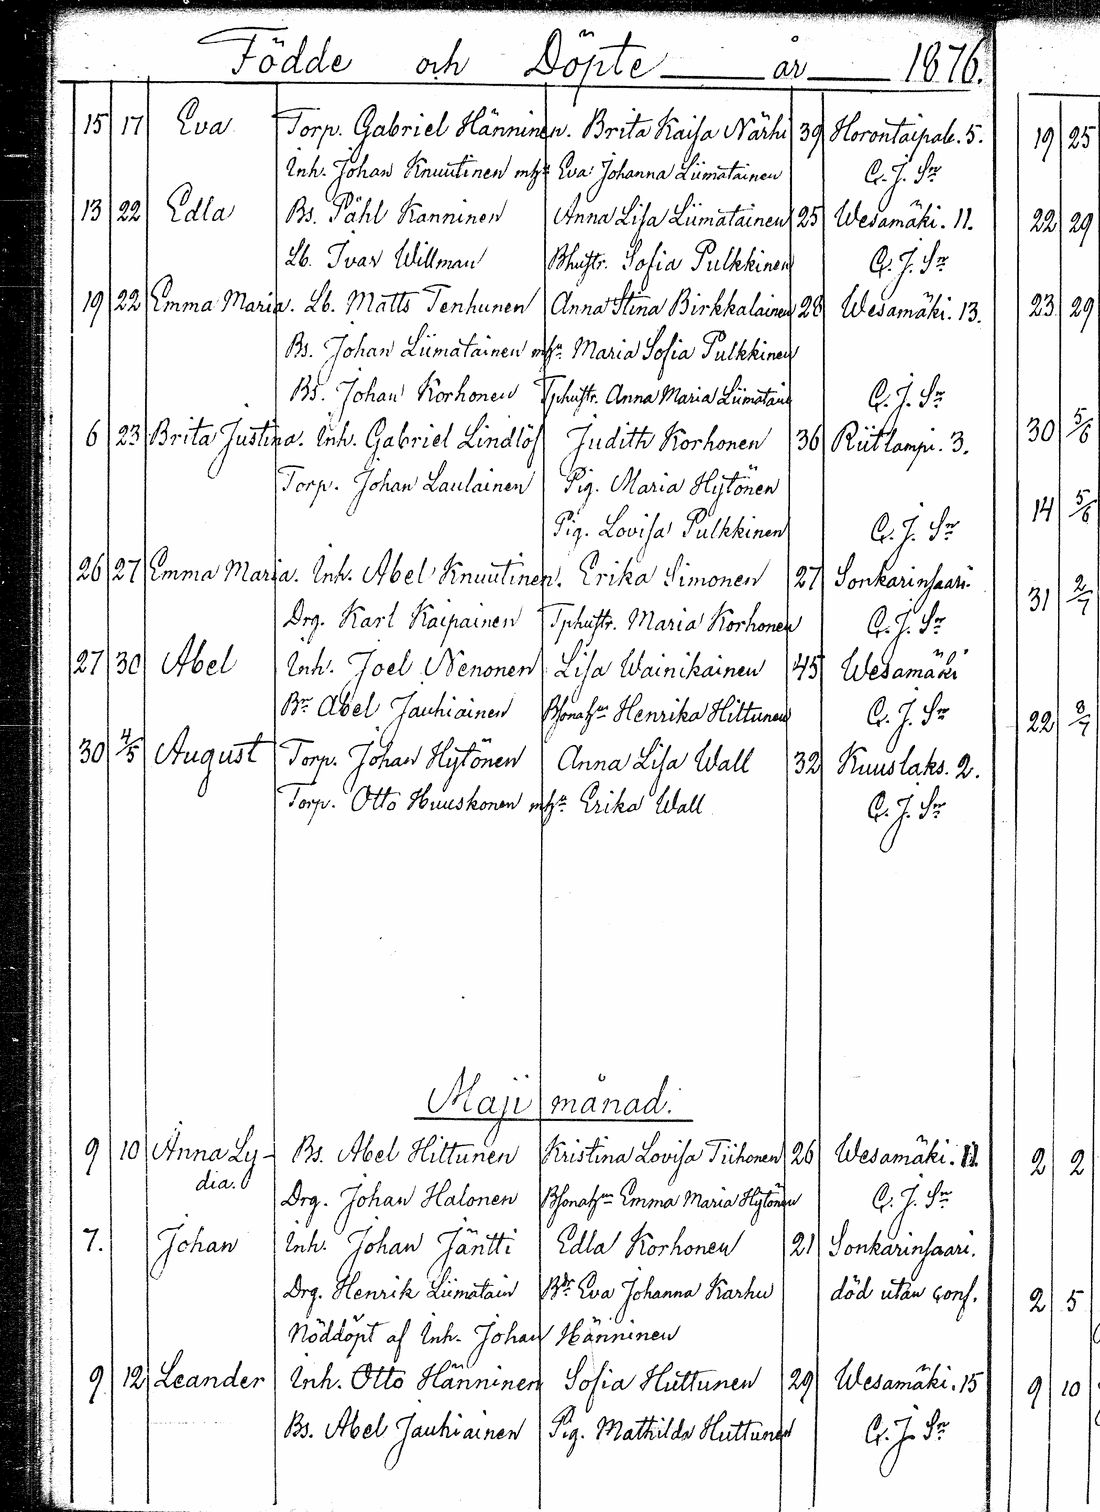 Födde och Döpte år 1876.
15 17 Eva Torp. Gabriel Hänninen. Brita Kaisa Närhi 39 Horontaipale. 5.
Inh. Johan Knuutinen m.h:u Eva Johanna Liimatainen C. J. Sn
13 22 Edla Bs. Påhl Kanninen Anna Lisa Liimatainen 25 Wesamäki. 11.
Lb. Ivar Willman Bhustr. Sofia Pulkkinen C. J. Sn
19 22 Emma Maria. Lb. Matts Tenhunen Anna Stina Birkkalainen 28 Wesamäki. 13.
Bs. Johan Liimatainen m.h:u Maria Sofia Pulkkinen
Bs. Johan Korhonen Tphustr. Anna Maria Liimatain C. J. Sn
6 23 Brita Justina. Inh. Gabriel Lindlöf Judith Korhonen 36 Riitlampi. 3.
Torp. Johan Laulainen Pig. Maria Hytönen
Pig. Lovisa Pulkkinen C. J. Sn
26 27 Emma Maria. Inh. Abel Knuutinen. Erika Simonen 27 Sonkarinsaari.
Drg. Karl Kaipainen Tphustr. Maria Korhonen C. J. Sn
27 30 Abel Inh. Joel Nenonen Lisa Wainikainen 45 Wesamäki
Br Abel Jauhiainen Henrika Hiltunen C. J. Sn
30 4/5 August Torp. Johan Hytönen Anna Lisa Wall 32 Kuuslaks. 2.
Torp. Otto Huuskonen m.h:u Erika Wall C. J. Sn
Maji månad.
9 10 Anna Ly- Bs. Abel Hiltunen Kristina Lovisa Tiihonen 26 Wesamäki. 11.
dia. Drg. Johan Halonen Emma Maria Hytönen C. J. Sn
7. Johan Inh. Johan Jäntti Edla Korhonen 21 Sonkarinsaari.
Drg. Henrik Liimatain Bdr Eva Johanna Karhu död utan conf.
Nöddöpt af Inh. Johan Hänninen
9 12 Leander Inh. Otto Hänninen Sofia Huttunen 29 Wesamäki. 15
Bs. Abel Jauhiainen Pig. Mathilda Huttunen C. J. Sn
19 25
22 29
23 29
30 5/6
14 5/6
31 2/7
22 3/7
2 2
2 5
9 10